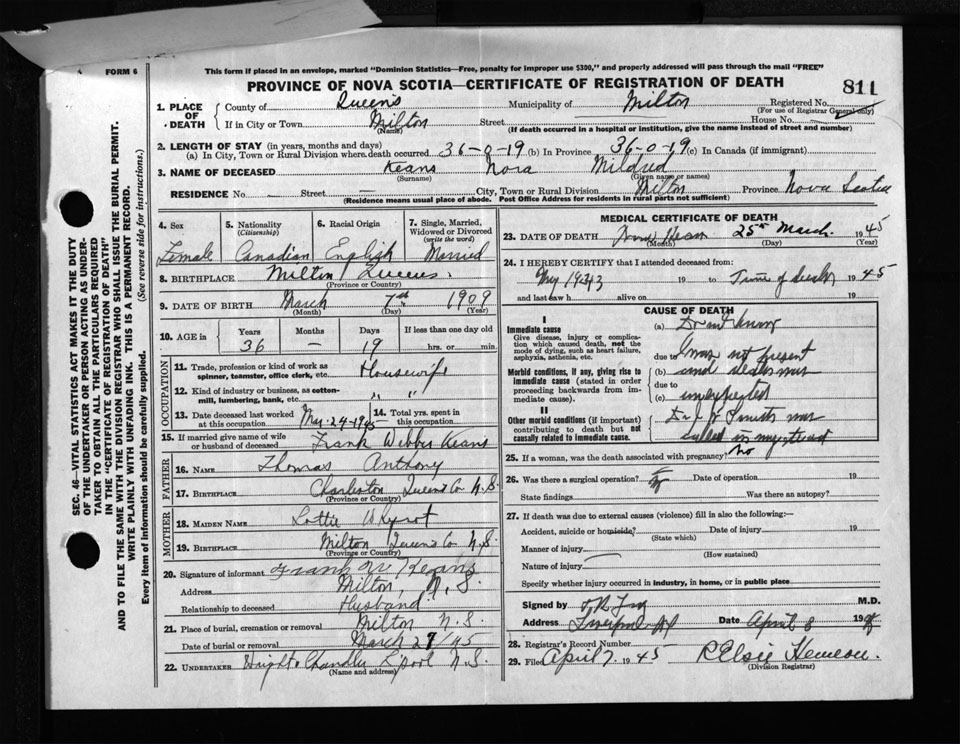 FORM 6
This form if placed in an envelope, marked "Dominion Statistics—Free, penalty for improper use $300," and properly addressed will pass through the mail "FREE"
PROVINCE OF NOVA SCOTIA—CERTIFICATE OF REGISTRATION OF DEATH 811
1. PLACE OF DEATH County of Queens Municipality of Milton Registered No.
(For use of Registrar General only)
If in City or Town Milton Street House No.
(Name) (If death occurred in a hospital or institution, give the name instead of street and number)
2. LENGTH OF STAY (in years, months and days)
(a) In City, Town or Rural Division where death occurred 36-0-19 (b) In Province 36-0-19 (c) In Canada (if immigrant)
3. NAME OF DECEASED Keans Nora Mildred
(Surname) (Given name or names)
RESIDENCE No. Street — City, Town or Rural Division Milton Province Nova Scotia
(Residence means usual place of abode. Post Office Address for residents in rural parts not sufficient)
4. Sex 5. Nationality (Citizenship) 6. Racial Origin 7. Single, Married, Widowed or Divorced (write the word)
Female Canadian English Married
8. BIRTHPLACE Milton Queens
(Province or Country)
9. DATE OF BIRTH March 7th 1909
(Month) (Day) (Year)
10. AGE in Years Months Days If less than one day old
36 — 19 hrs. or min.
OCCUPATION
11. Trade, profession or kind of work as spinner, teamster, office clerk, etc. Housewife
12. Kind of industry or business, as cotton-mill, lumbering, bank, etc. " "
13. Date deceased last worked at this occupation Mar-24-1945 14. Total yrs. spent in this occupation
15. If married give name of wife or husband of deceased Frank Webber Keans
FATHER
16. NAME Thomas Anthony
17. BIRTHPLACE Charleston Queens Co N.S.
(Province or Country)
MOTHER
18. MAIDEN NAME Lottie
19. BIRTHPLACE Milton Queens Co N.S.
(Province or Country)
20. Signature of informant Frank W Keans
Address Milton, N.S.
Relationship to deceased Husband
21. Place of burial, cremation or removal Milton N.S.
Date of burial or removal March 27/45
22. UNDERTAKER Wright & Chandler L'pool N.S.
(Name and address)
MEDICAL CERTIFICATE OF DEATH
23. DATE OF DEATH 25th March 1945
(Month) (Day) (Year)
24. I HEREBY CERTIFY that I attended deceased from:
1943 19 to Time of death 1945
and last saw h alive on 19
CAUSE OF DEATH
I
Immediate cause
Give disease, injury or complication which caused death, not the mode of dying, such as heart failure, asphyxia, asthenia, etc.
(a) Do not know
due to I was not present
Morbid conditions, if any, giving rise to immediate cause (stated in order proceeding backwards from immediate cause).
(b) and death was
due to
(c) unexpected
II
Other morbid conditions (if important) contributing to death but not causally related to immediate cause.
Dr J Smith was
called in my stead
25. If a woman, was the death associated with pregnancy? No
26. Was there a surgical operation? Date of operation 19
State findings Was there an autopsy?
27. If death was due to external causes (violence) fill in also the following:—
Accident, suicide or homicide? Date of injury 19
(State which)
Manner of injury
(How sustained)
Nature of injury
Specify whether injury occurred in industry, in home, or in public place
Signed by M.D.
Address Liverpool NS Date April 8 19
28. Registrar's Record Number
29. Filed April 7 1945 R Elsie
(Division Registrar)
SEC. 46—VITAL STATISTICS ACT MAKES IT THE DUTY
OF THE UNDERTAKER OR PERSON ACTING AS UNDER-
TAKER TO OBTAIN ALL THE PARTICULARS REQUIRED
IN THE "CERTIFICATE OF REGISTRATION OF DEATH"
AND TO FILE THE SAME WITH THE DIVISION REGISTRAR WHO SHALL ISSUE THE BURIAL PERMIT.
WRITE PLAINLY WITH UNFADING INK. THIS IS A PERMANENT RECORD.
Every item of information should be carefully supplied. (See reverse side for instructions.)